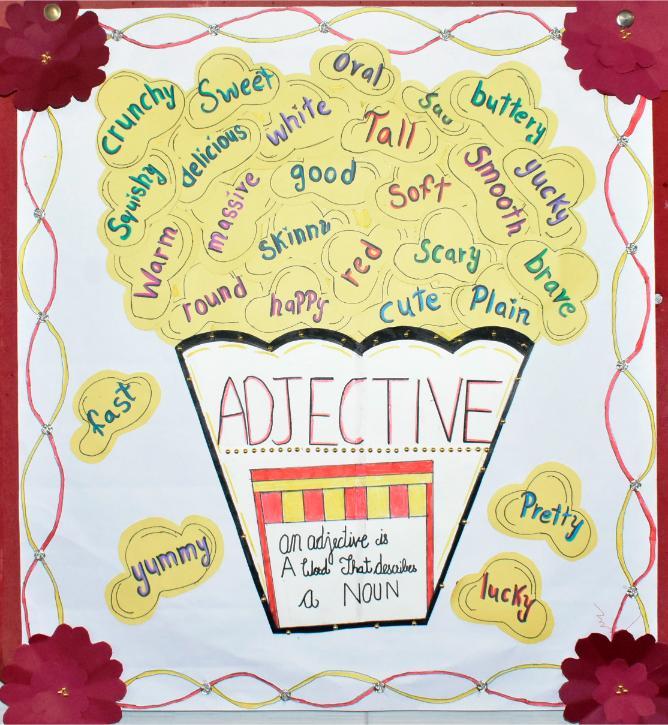 Oral
Crunchy
Sweet
white
Sad
buttery
delicious
Tall
Squishy
massive
good
Soft
Smooth
yucky
Warm
Skinny
red
Scary
brave
round
happy
cute
Plain
ADJECTIVE
fast
yummy
Pretty
lucky
an adjective is
A Word That describes
a NOUN